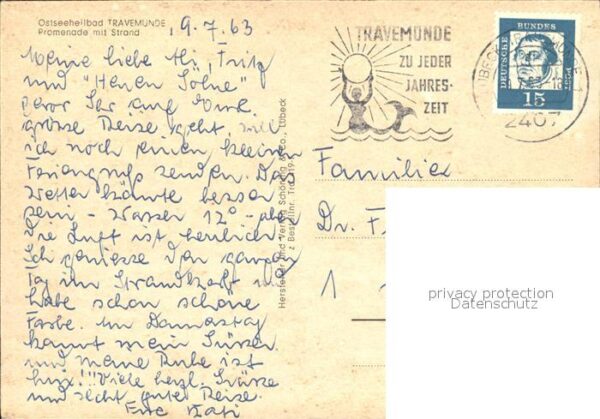 Ostseeheilbad TRAVEMÜNDE
Promenade mit Strand
9.7.63
Meine liebe Mi, Fritz
und "Herren Söhne"
bevor Ihr auf Eure
grosse Reise geht, will
ich noch einen kleinen
Feriengruß senden. Das
Wetter könnte besser
sein - Wasser 12° - aber
die Luft ist herrlich
Ich geniesse den ganzen
Tag im Strandkorb und
habe schon schöne
Farbe. Am Donnerstag
kommt mein Süsser
und meine Ruhe ist
hin!!! Viele herzl. Grüsse
und recht gute Reise.
Eure Kati
Hersteller und Verlag Schöning & Co., Lübeck
TRAVEMÜNDE
ZU JEDER
JAHRES-
ZEIT
DEUTSCHE BUNDES POST
15
2407
Familie
Dr. F
1
privacy protection
Datenschutz